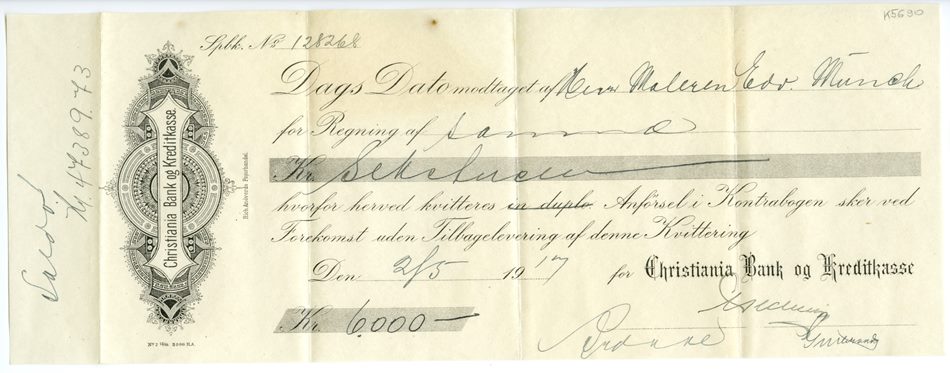 K5690
Spbk. No 128268
Dags Dato modtaget af Herr Maleren Edv. Munch
for Regning af samme
Kr. Sekstusen
hvorfor herved kvitteres in duplo. Anförsel i Kontrabogen sker ved
Forekomst uden Tilbagelevering af denne Kvittering
Den 2/5 1917 for Christiania Bank og Kreditkasse
Kr. 6000—
Christiania Bank og Kreditkasse
Saldo
Kr. 47389.73